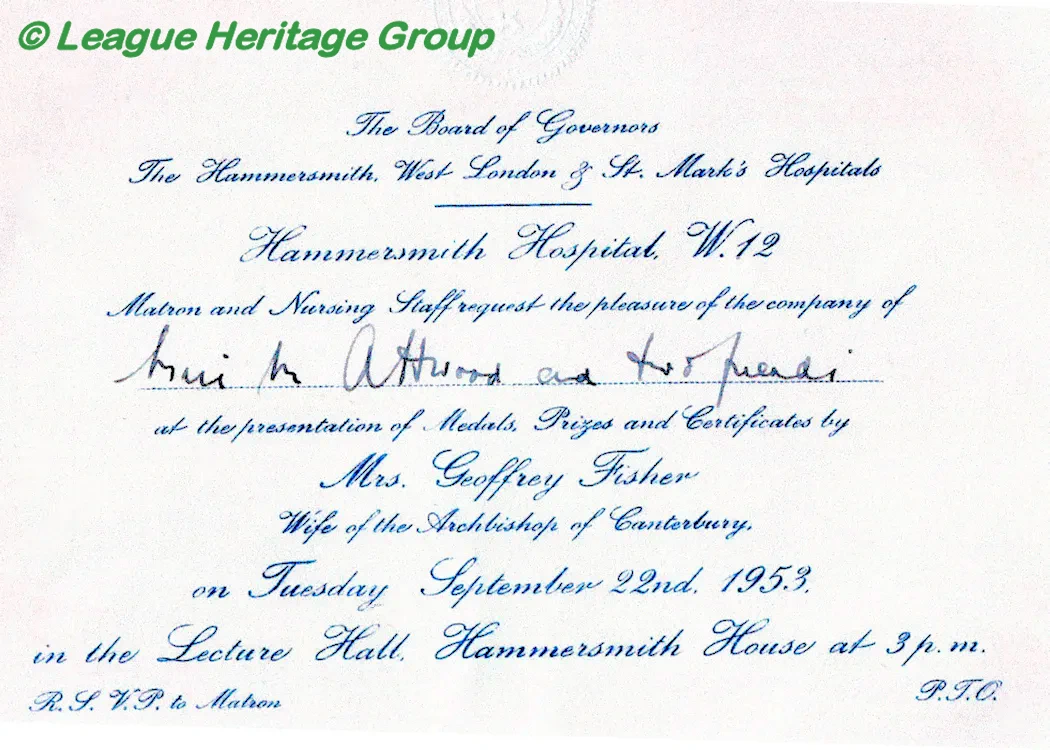 © League Heritage Group
The Board of Governors
The Hammersmith, West London & St. Mark's Hospitals
Hammersmith Hospital, W.12
Matron and Nursing Staff request the pleasure of the company of
Miss M Attwood and two friends
at the presentation of Medals, Prizes and Certificates by
Mrs. Geoffrey Fisher
Wife of the Archbishop of Canterbury,
on Tuesday September 22nd, 1953,
in the Lecture Hall, Hammersmith House at 3 p.m.
R.S.V.P. to Matron
P.T.O.